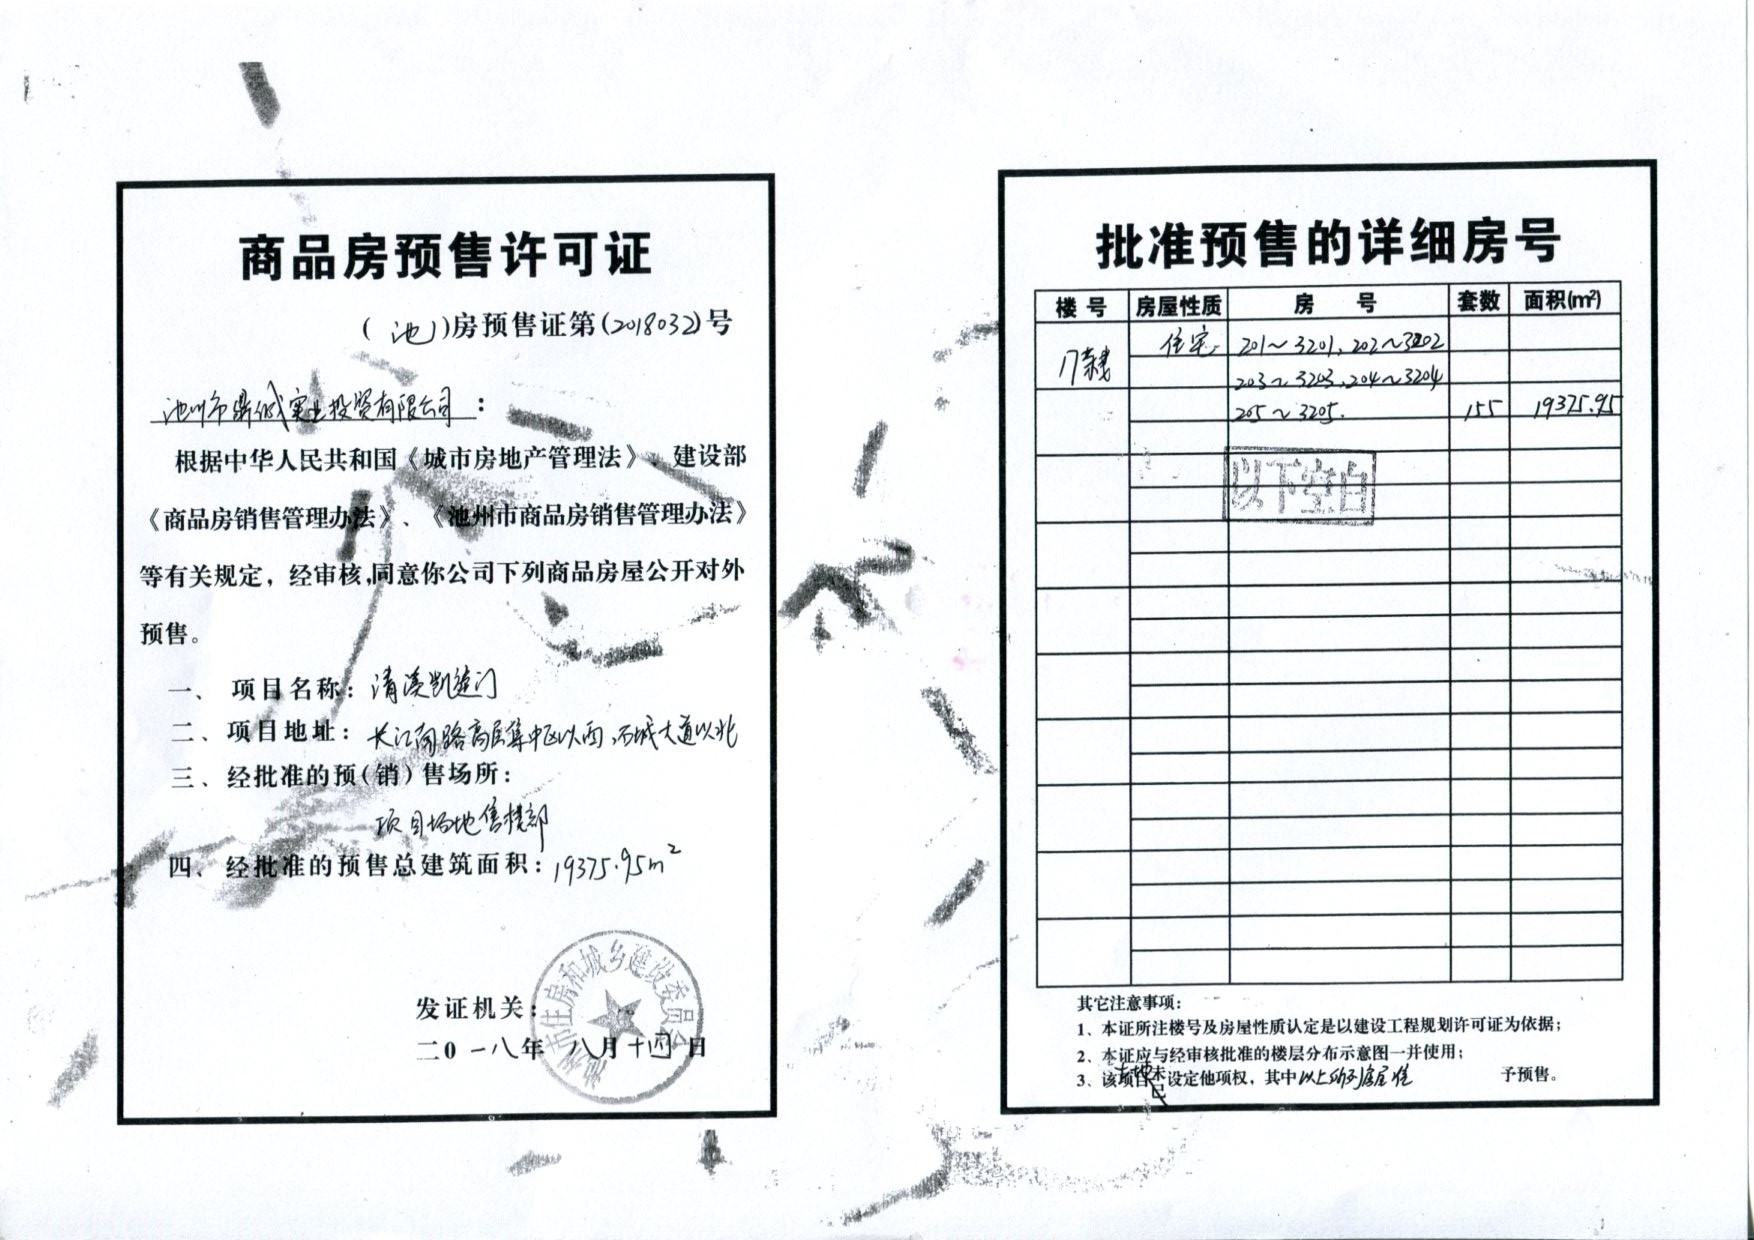 商品房预售许可证
(池)房预售证第(2018032)号
池州市鼎城实业投资有限公司：
根据中华人民共和国《城市房地产管理法》、建设部
《商品房销售管理办法》、《池州市商品房销售管理办法》
等有关规定，经审核,同意你公司下列商品房屋公开对外
预售。
一、项目名称：清溪凯旋门
二、项目地址：长江南路高层集中区以西，石城大道以北
三、经批准的预(销)售场所：
项目场地售楼部
四、经批准的预售总建筑面积：19375.95m²
发证机关：
二0一八年八月十四日
池州市住房和城乡建设委员会
批准预售的详细房号
楼号 房屋性质 房号 套数 面积(m²)
17幢 住宅 201～3201,202～3202
203～3203,204～3204
205～3205. 155 19375.95
以下空白
其它注意事项：
1、本证所注楼号及房屋性质认定是以建设工程规划许可证为依据；
2、本证应与经审核批准的楼层分布示意图一并使用；
3、该项目土地未设定他项权，其中以上所列房屋准予预售。